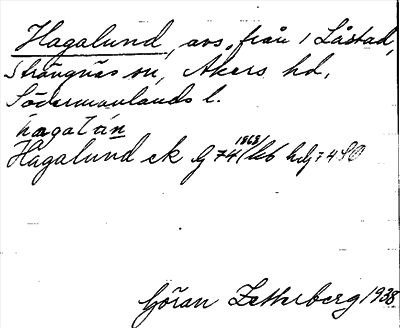 Hagalund, avs. från 1 Låstad,
Strängnäs sn, Åkers hd,
Södermanlands l.
hagalún
Hagalund ek G 74 1868/66 hdj 7480
Göran Zetterberg 1938